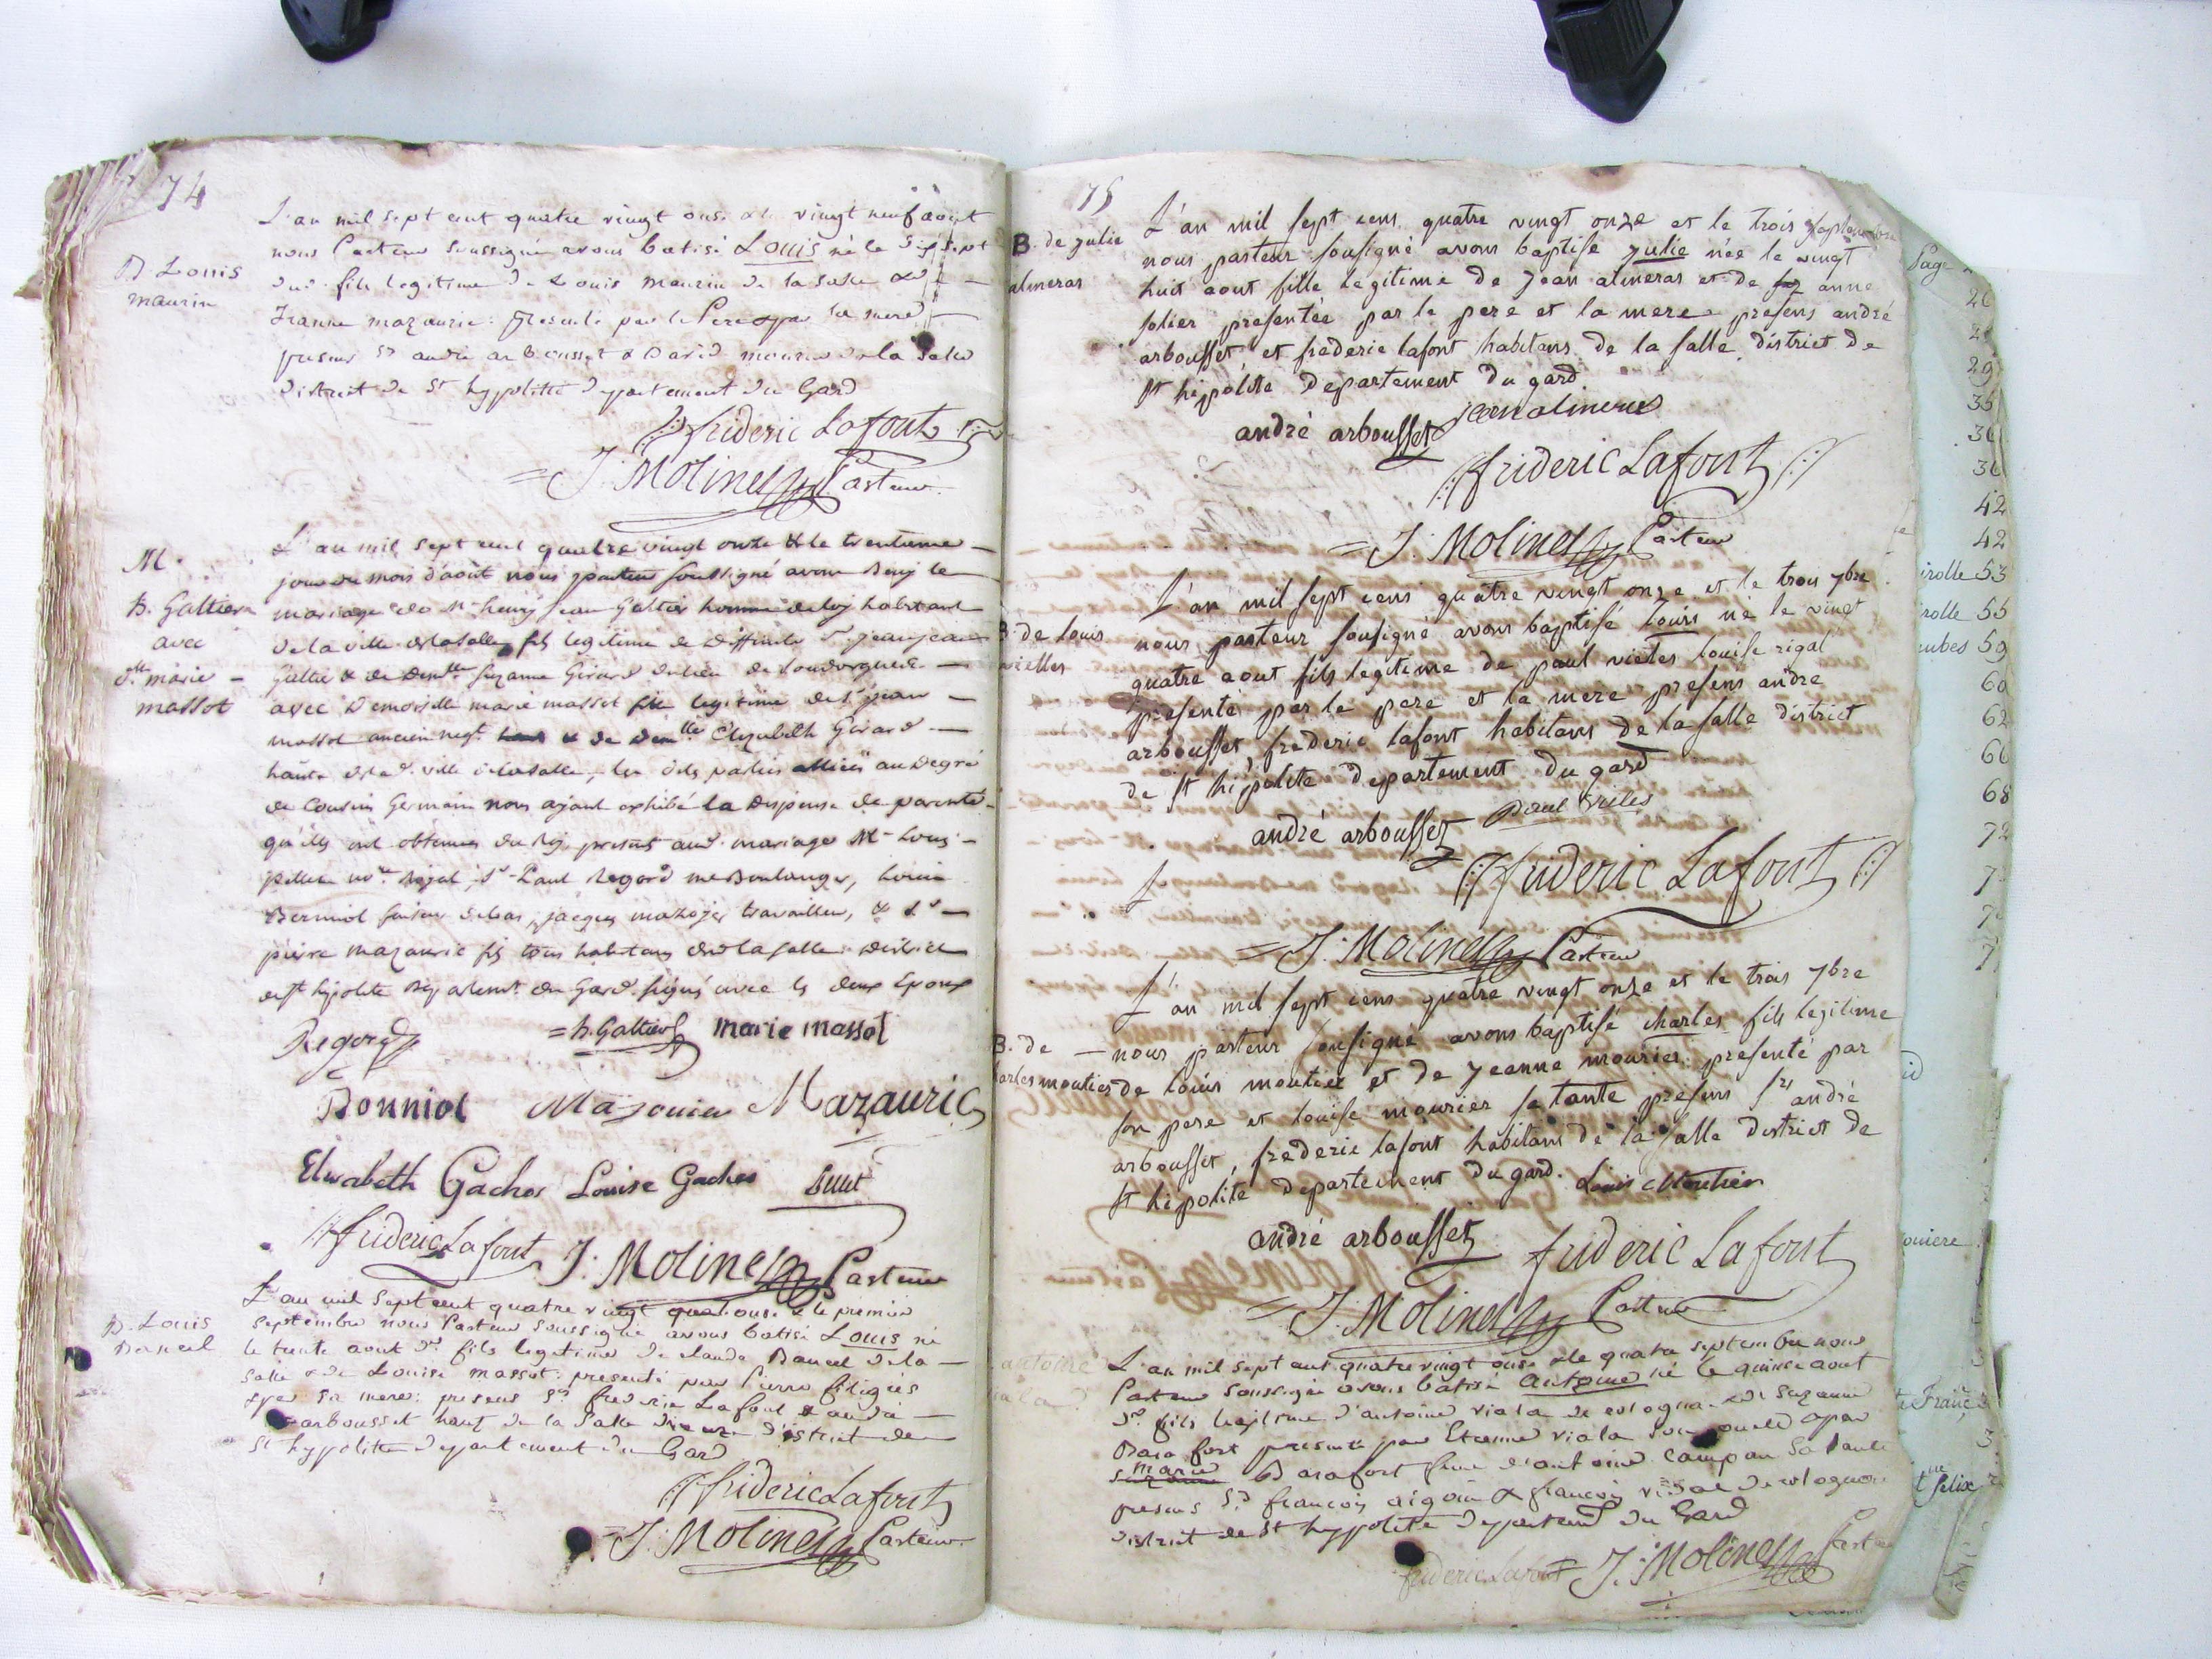 74
B. Louis
maurin
L'an mil sept cent quatre vingt onse & le vingt neuf aout
nous Pasteur soussigné avons batisé Louis né le dix sept
dud. fils legitime de Louis maurin de la salle & de
Jeanne mazauric: presenté par le Pere & par sa mere
presens Sr andré arbousset & David mourier de la salle
district de St hyppolitte departement du Gard
frideric Lafont
J. Molines Pasteur
M.
h. Galtier
avec
dlle marie
massot
L'an mil sept cent quatre vingt onze & le trentieme
jour du mois d'août nous pasteur soussigné avons Beny le
mariage de Mr henry jean Galtier homme de loy habitant
de la ville de lasalle fils legitime de deffunts Sr jean jean
Galtier & de demlle suzanne Girard du lieu de
avec Demoiselle marie massot fille legitime de Sr jean
massot ancien negt & de demlle Elizabeth Girard
habts de lad. ville de lasalle, les dits parties alliés au degré
de Cousin Germain nous ayant exhibé la dispense de parenté
qu'ils ont obtenue du Roy, presents aud. mariage Mr Louis
pellet nre Royal, Sr Paul Regord me Boulanger, Louis
Bonniol faiseur de bas, jacques mazoyer travailleur, & Sr
pierre mazauric fils tous habitans de lasalle district
de St hypolite departemt du Gard. signés avec les deux Epoux
Regord h. Galtier marie massot
Bonniol Mazouier Mazauric
Elisabeth Gaches Louise Gaches Pellet
frideric Lafont J. Molines Pasteur
B. Louis
Bancel
L'an mil sept cent quatre vingt onse & le premier
septembre nous Pasteur soussigné avons batisé Louis né
le trente aout dr fils legitime de claude Bancel de la
salle & de Louise massot: presenté par Pierre
& par sa mere: presens Srs frederic Lafont & andré
arbousset habts de la salle district de
St hyppolitte departement du Gard
frideric Lafont
J. Molines Pasteur
75
B. de julie
almeras
L'an mil sept cens quatre vingt onze et le trois septembre
nous pasteur sousigné avons baptise julie née le vingt
huit aout fille legitime de jean almeras et de anne
solier presentée par le pere et la mere presens andré
arbousset et frederic lafont habitans de la salle district de
st hipolite departement du gard.
jean almeras
andré arbousset
frideric Lafont
J. Molines Pasteur
B. de louis
vielles
L'an mil sept cens quatre vingt onze et le trois 7bre
nous pasteur sousigné avons baptisé louis né le vingt
quatre aout fils legitime de paul vieles louise rigal
presenté par le pere et la mere presens andre
arbousset, frederic lafont habitans de la salle district
de st hipolite departement du gard
paul vieles
andré arbousset
frideric Lafont
J. Molines Pasteur
B. de
charles moutier
L'an mil sept cens quatre vingt onze et le trois 7bre
nous pasteur sousigné avons baptisé charles fils legitime
de louis moutier et de jeanne mourier: presenté par
son pere et louise mourier sa tante presens srs andré
arbousset, frederic lafont habitans de la salle district de
st hipolite departement du gard. Louis Moutier
andré arbousset frideric Lafont
J. Molines Pasteur
antoine
viala
L'an mil sept cent quatre vingt onse & le quatre septembre nous
Pasteur soussigné avons batisé antoine né le quinse aout
dr fils legitime d'antoine viala de cologna & de suzanne
Barafort presenté par Etienne viala son oncle & par
marie Barafort feme d'antoine campan sa tante
presens Srs francois aigoin & francois vidal de cologna
district de St hyppolite departemt du Gard
frideric Lafont J. Molines Pasteur
Page
26
29
35
36
36
42
42
irolle 53
irolle 55
ubes 59
60
62
66
68
72